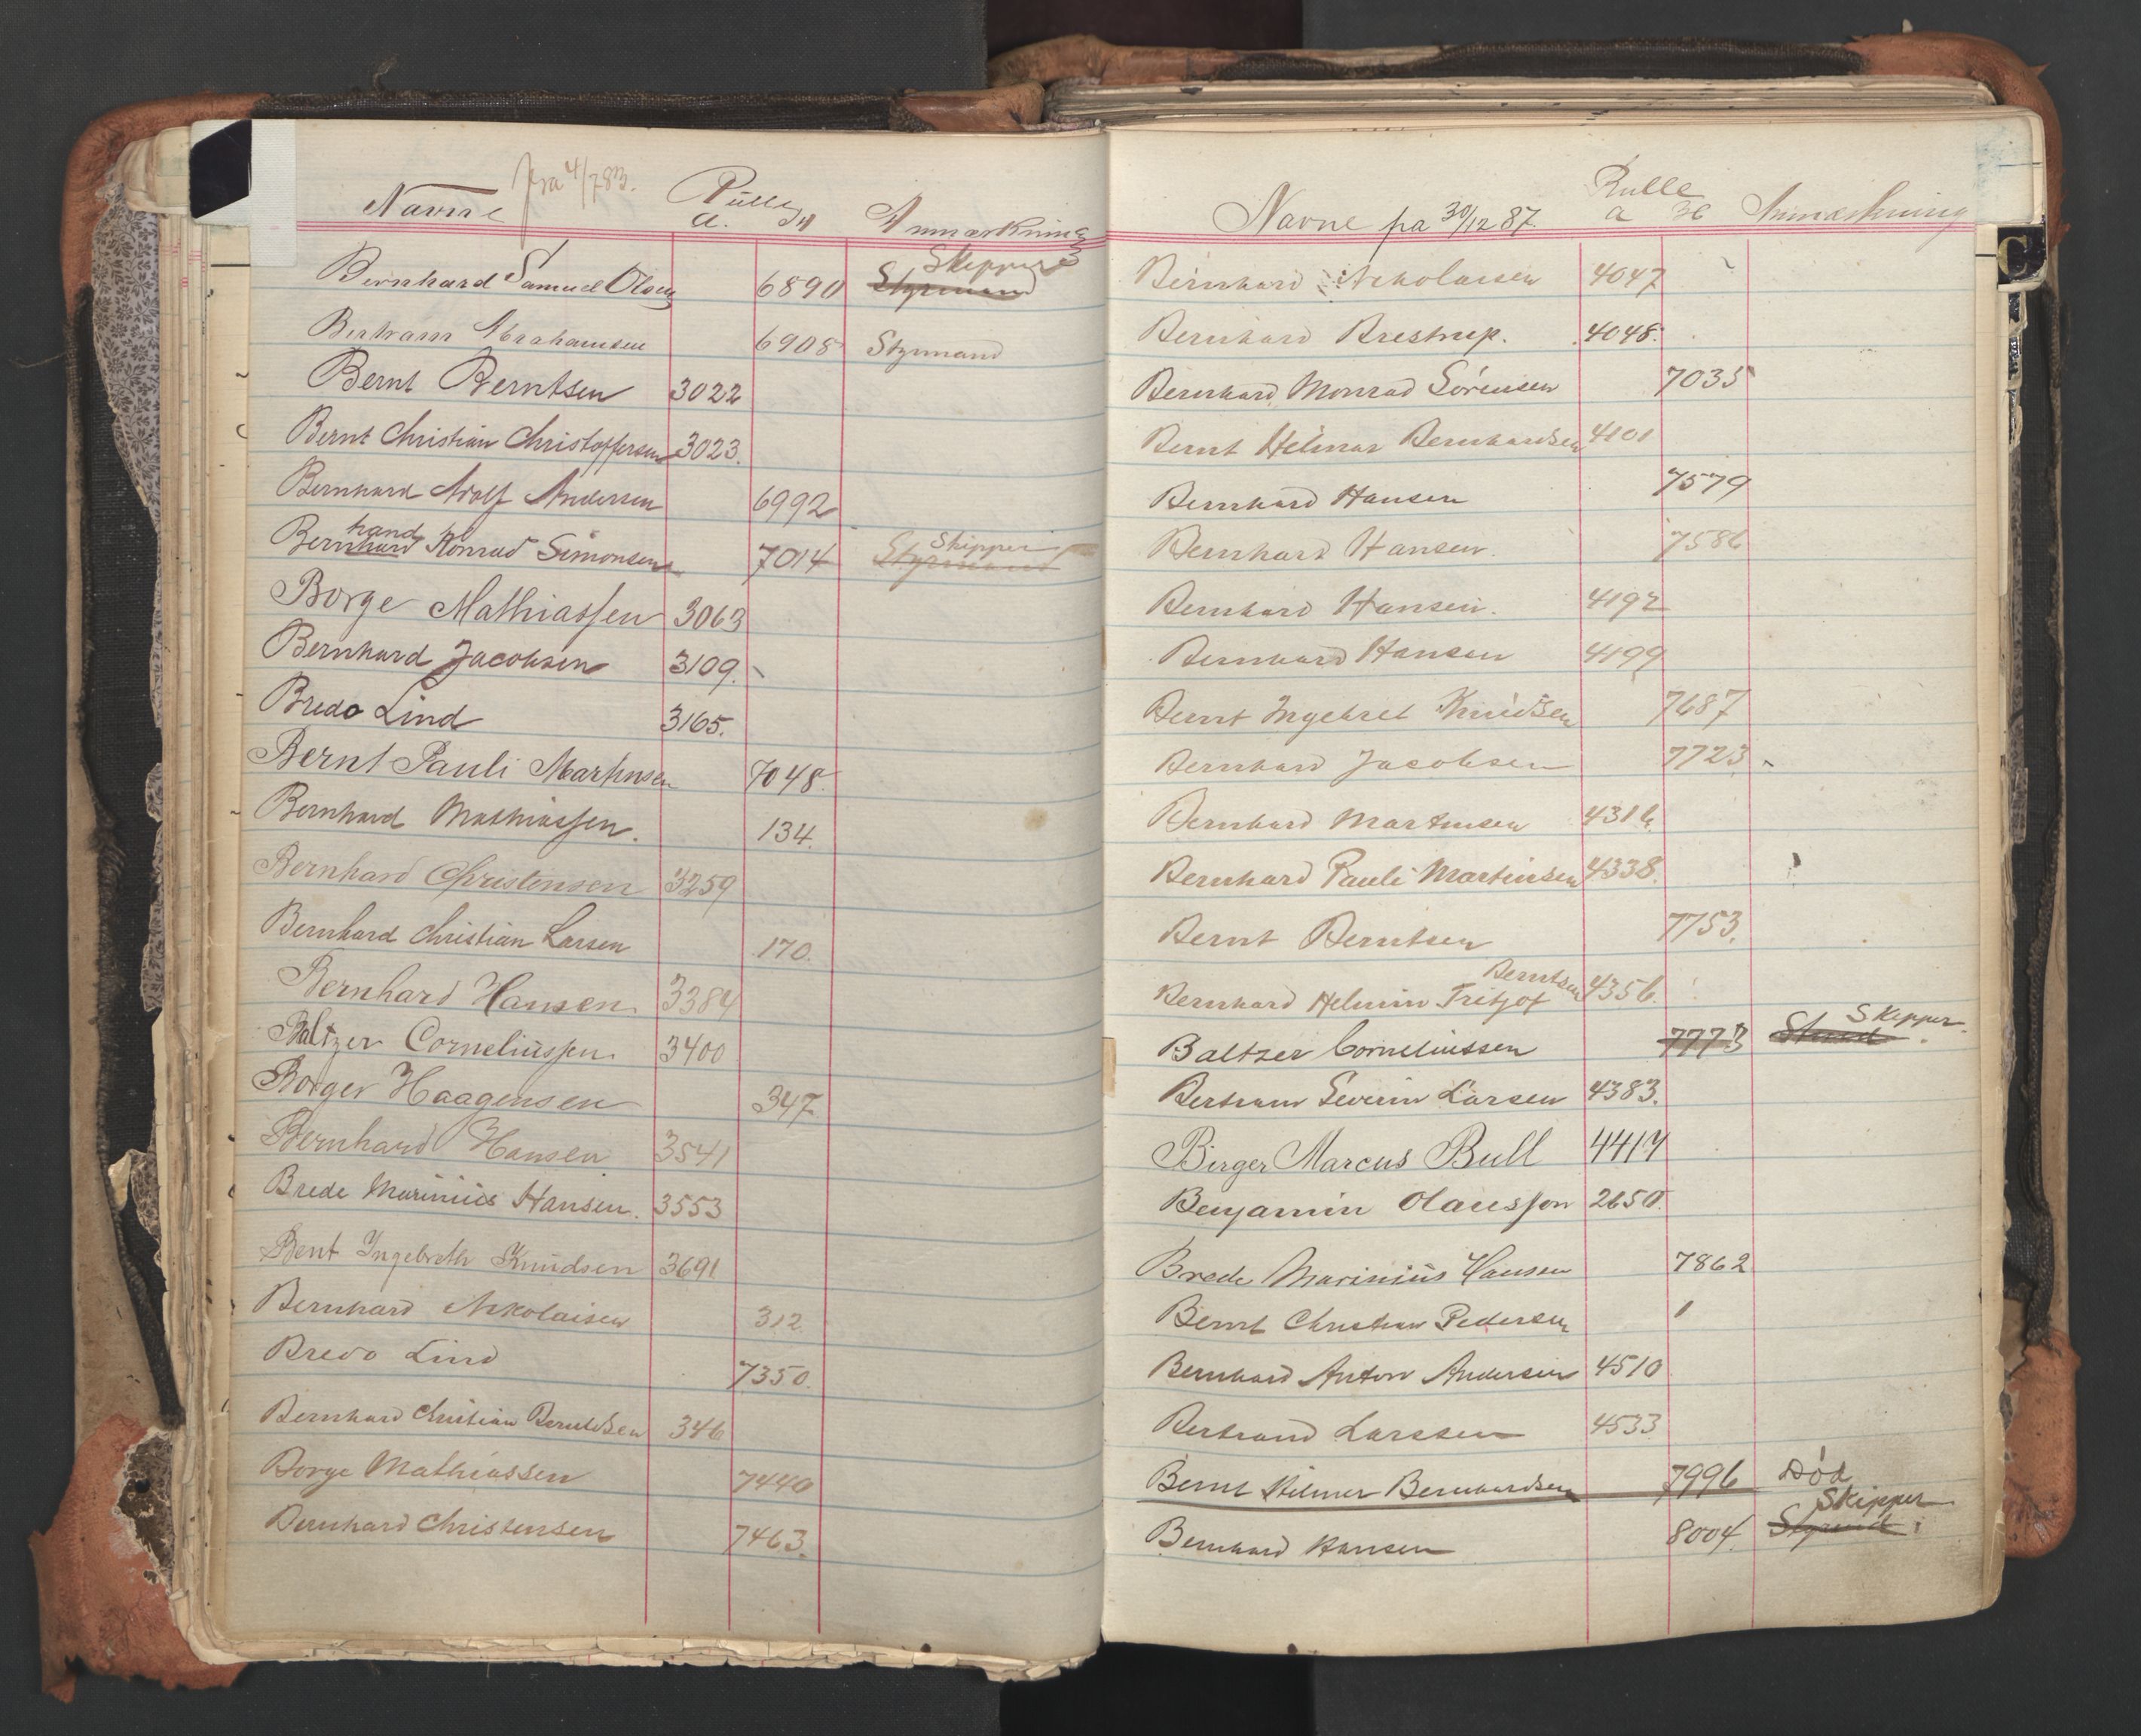 Navne fra 4/7 83. Rulle Anmærkning
a.
Bernhard Samuel Olsen 6890 Styrmand Skipper
Bertram Abrahamsen 6908 Styrmand
Bernt Berntsen 3022
Bernt Christian Christoffersen 3023.
Bernhard Adolf Andersen 6992
Bernhard hand Konrad Simonsen 7014 Styrmand Skipper
Borge Mathiassen 3063
Bernhard Jacobsen 3109.
Bredo Lind 3165.
Bernt Pauli Martinsen 7048.
Bernhard Mathiassen. 134.
Bernhard Christensen 3259
Bernhard Christian Larsen 170.
Bernhard Hansen. 3384
Baltzer Corneliussen. 3400
Borger Haagensen 347
Bernhard Hansen 3541
Brede Marinius Hansen. 3553
Bent Ingebreth Knudsen 3691
Bernhard Nikolaisen 312
Bredo Lind 7350.
Bernhard Christian 346
Borge Mathiassen 7440
Bernhard Christensen 7463.
Navne fra 30/12 87. Rulle Anmærkning
a
Bernhard Nikolaisen 4047
Bernhard Brestrup. 4048.
Bernhard Monrad Sörensen 7035
Bernt Helmar Bernhardsen 4101
Bernhard Hansen 7579
Bernhard Hansen. 7586
Bernhard Hansen. 4192
Bernhard Hansen 4199
Bernt Ingebret Knudsen 7687
Bernhard Jacobsen 7723
Bernhard Martinsen 4316.
Bernhard Pauli Martinsen 4338.
Bernt Berntsen 7753.
Bernhard Helmin Fritjof Berntsen 4356.
Baltzer Corneliussen 7773 Skipper.
Bertram Severin Larsen 4383.
Birger Marcus Bull 4417
Benjamin Olausson 2650.
Brede Marinius Hansen 7862
Bernt Christian Pedersen 1
Bernhard Anton Andersen 4510
Bertrand Larssen 4533
Bernt Hilmer Bernhardsen 7996 Död
Bernhard Hansen 8004. Styrmd Skipper
C